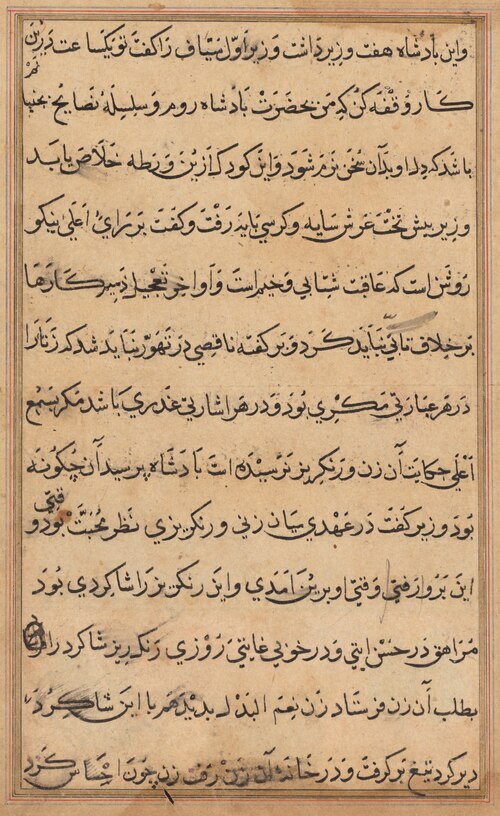 واین بادشاه هفت وزیر داشت وزیر اوّل سیّاف را کفت تو یکساعت درین
کار وقفه کن که من بحضرت بادشاه روم و سلسلهٔ نصایح بجنبا
باشد که دل او بدان سخن نرم شود و این کودک ازین ورطه خلاص یابد
وزیر بیش تخت عرش سایه و کرسی پایه رفت و کفت بر رای اعلی نیکو
روشن است که عاقبت شتابی وخیم است و اواخر تعجیل کارها
بر خلاف تانّی نباید کرد و بر کفته ناقصی در تهوّر نباید شد که زنانرا
در هر عبارتی مکری بود و در هر اشارتی غدری باشد مکر بسمع
اعلی حکایت آن زن و رنکریز نرسیده است بادشاه پرسید آن چکونه
بود وزیر کفت در عهدی میان زنی و رنکریزی نظر محبّت بود و وقتی
این برو رفتی و وقتی او برین آمدی و این رنکریز را شاکردی بود
مراهق در حسن ایتی و در خوبی غایتی روزی رنکریز شاکرد را
بطلب آن زن فرستاد زن نعم البدل بدید هم با این شاکرد
دیر کرد تیغ بر کرفت و در خانهٔ آن زن رفت زن چون احساس کرد